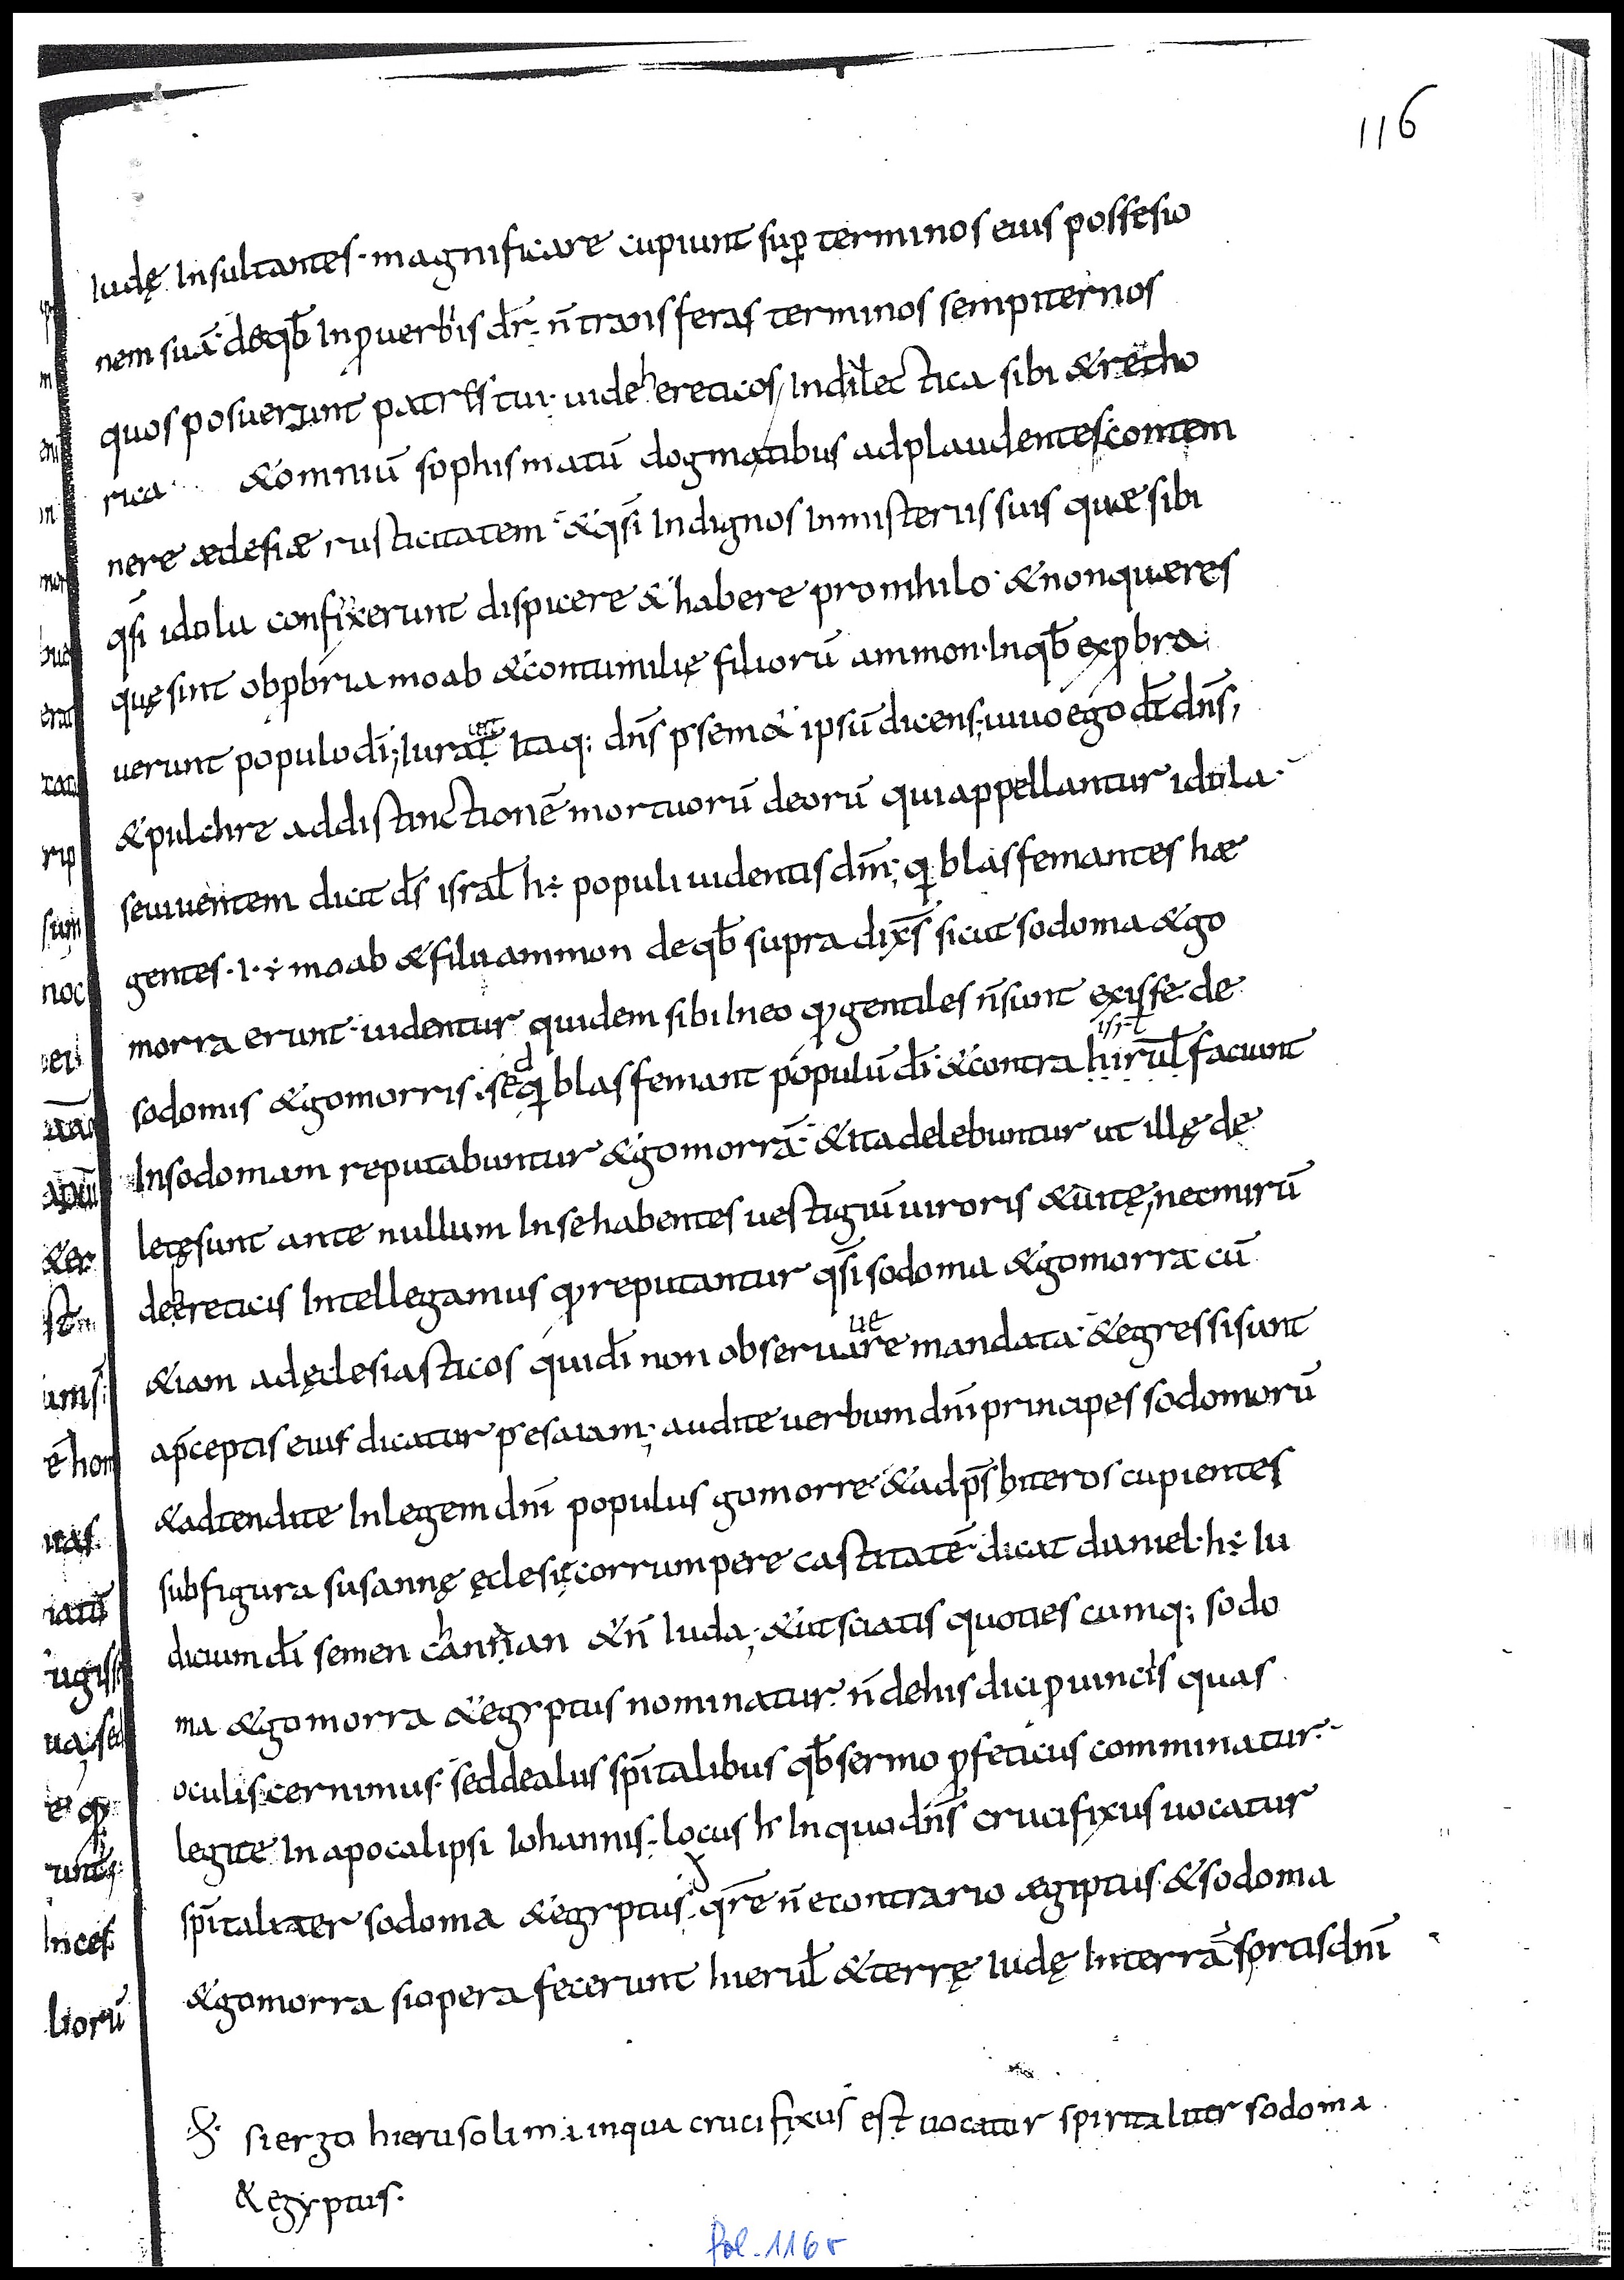 116
iudę insultantes· magnificare cupiunt sup̄ terminos eius possesio
nem suā· deqb̄ inꝓuerbiis dr̄· n̄ transferas terminos sempiternos
quos posuerunt patres tui· uide hereticos, indilectica sibi & retho
rica· & omniū sophismatū dogmatibus adplaudentes· contem
nere æclesiæ rusticitatem· & qs̄i indignos inmisteriis suis quæ sibi
qs̄i idola confixerunt dispicere & habere pronihilo· & nonquæres
quę sint obꝓbria moab & contumilię filiorū ammon· inqb̄ exꝓbra
uerunt populo dī; iurat itaq; dn̄s p̄ sem& ipsū dicens; uiuo ego dicit dn̄s,
& pulchre addistinctionē mortuorū deorū qui appellantur idola·
seuiuentem dicit ds̄ isrl̄ h̄· populi uidentis dm̄; q blasfemantes hæ
gentes· i· moab & filii ammon deqb̄ supra dix̄ sicut sodoma & go
morra erunt· uidentur quidem sibi ineo qđ gentiles n̄ sunt exisse de
isrl̄
sodomis & gomorris· sed q blasfemant populū dī· & contra hirul̄ faciunt
insodomam reputabuntur & gomorrā· & ita delebuntur ut illę de
letę sunt ante nullum inse habentes uestigiū uiroris & uitę, necmirū
de hereticis intellegamus qđ reputantur qs̄i sodoma & gomorra cū
ue
& iam adęclesiasticos qui dī non obseruare mandata· & egressi sunt
ap̄ceptis eius dicatur p̄ esaiam; audite uerbum dn̄i principes sodomorū
& adtendite inlegem dn̄i populus gomorre· & adp̄sbiteros cupientes
sub figura susannę ęclesię corrumpere castitatē· dicat daniel· h̄· iu
dicium dī semen channan & n̄ iuda; & ut sciatis quoties cumq; sodo
ma & gomorra & egyptus nominatur· n̄ dehis dici ꝓuinciis quas
oculis cernimus· sed dealiis sp̄italibus qb̄ sermo ꝓfeticus comminatur·
legite in apocalipsi iohannis· locus h̄ inquo dn̄s crucifixus uocatur
sp̄italiter sodoma & egyptus· qr̄e n̄ econtrario ægiptus· & sodoma
& gomorra si opera fecerunt hierul̄ & terrę iudę interrā sortis dn̄i
si ergo hierusolima inqua crucifixus est uocatur spiritaliter sodoma
& egyptus·
fol. 116r